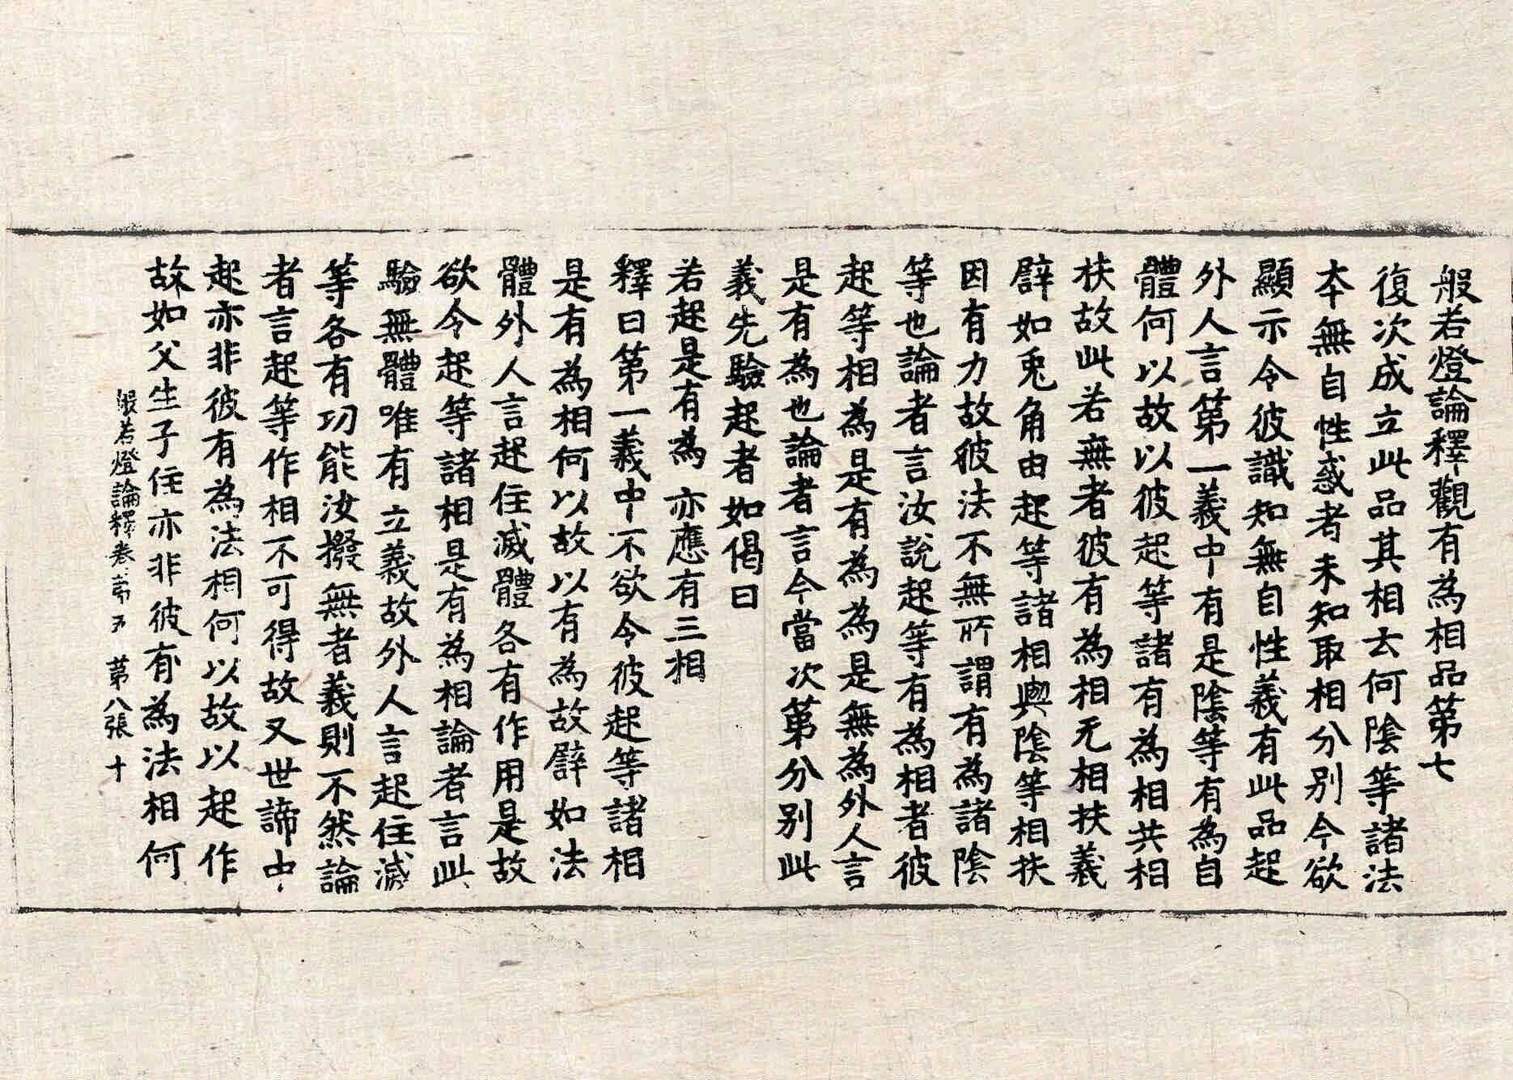 般若燈論釋觀有為相品第七
復次成立此品其相去何陰等諸法
本無自性惑者未知取相分別今欲
顯示令彼識知無自性義有此品起
外人言第一義中有是陰等有為自
體何以故以彼起等諸有為相共相
扶故此若無者彼有為相无相扶義
辟如兎角由起等諸相與陰等相扶
因有力故彼法不無所謂有為諸陰
等也論者言汝說起等有為相者彼
起等相為是有為為是無為外人言
是有為也論者言今當次第分别此
義先驗起者如偈曰
若起是有為 亦應有三相
釋曰第一義中不欲令彼起等諸相
是有為相何以故以有為故辟如法
體外人言起住滅體各有作用是故
欲令起等諸相是有為相論者言此
驗無體唯有立義故外人言起住滅
等各有功能汝撥無者義則不然論
者言起等作相不可得故又世諦中
起亦非彼有為法相何以故以起作
故如父生子住亦非彼有為法相何
般若燈論釋卷第五 第八張 十